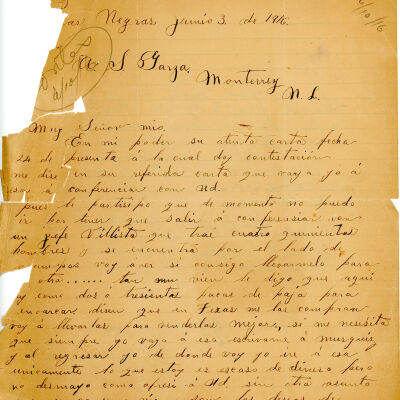 Negras junio 3. de 1916.
6/10/16
A. S. Garza,
Monterrey
N. L.
Muy Señor mio.
En mi poder su atenta carta fecha
24 de presenta á la cual doy contestacion
me dise en su referida carta que vaya yo á
esa á conferenciar con Ud.
pues le partisipo que de momento no puedo
ir por tener que salir á conferensiar con
un jefe Villista que trai cuatro quinientos
hombres y se encuentra por el lado de
campos voy aver si consigo llevarmelo para
otra...... tan muy vien le digo que aqui
y como dos ó tresientas pacas de paja para
encarcar disen que en Texas me las compran
voy á llevarlas para venderlas mejor, si me nesesita
que siempre yo vaya á esa escrivame á Musquiz
y al regresar yo de donde voy yo ire á esa
unicamente lo que estoy es escaso de dinero pero
no desmayo como ofresi á Ud. sin otro asunto
los deseos de